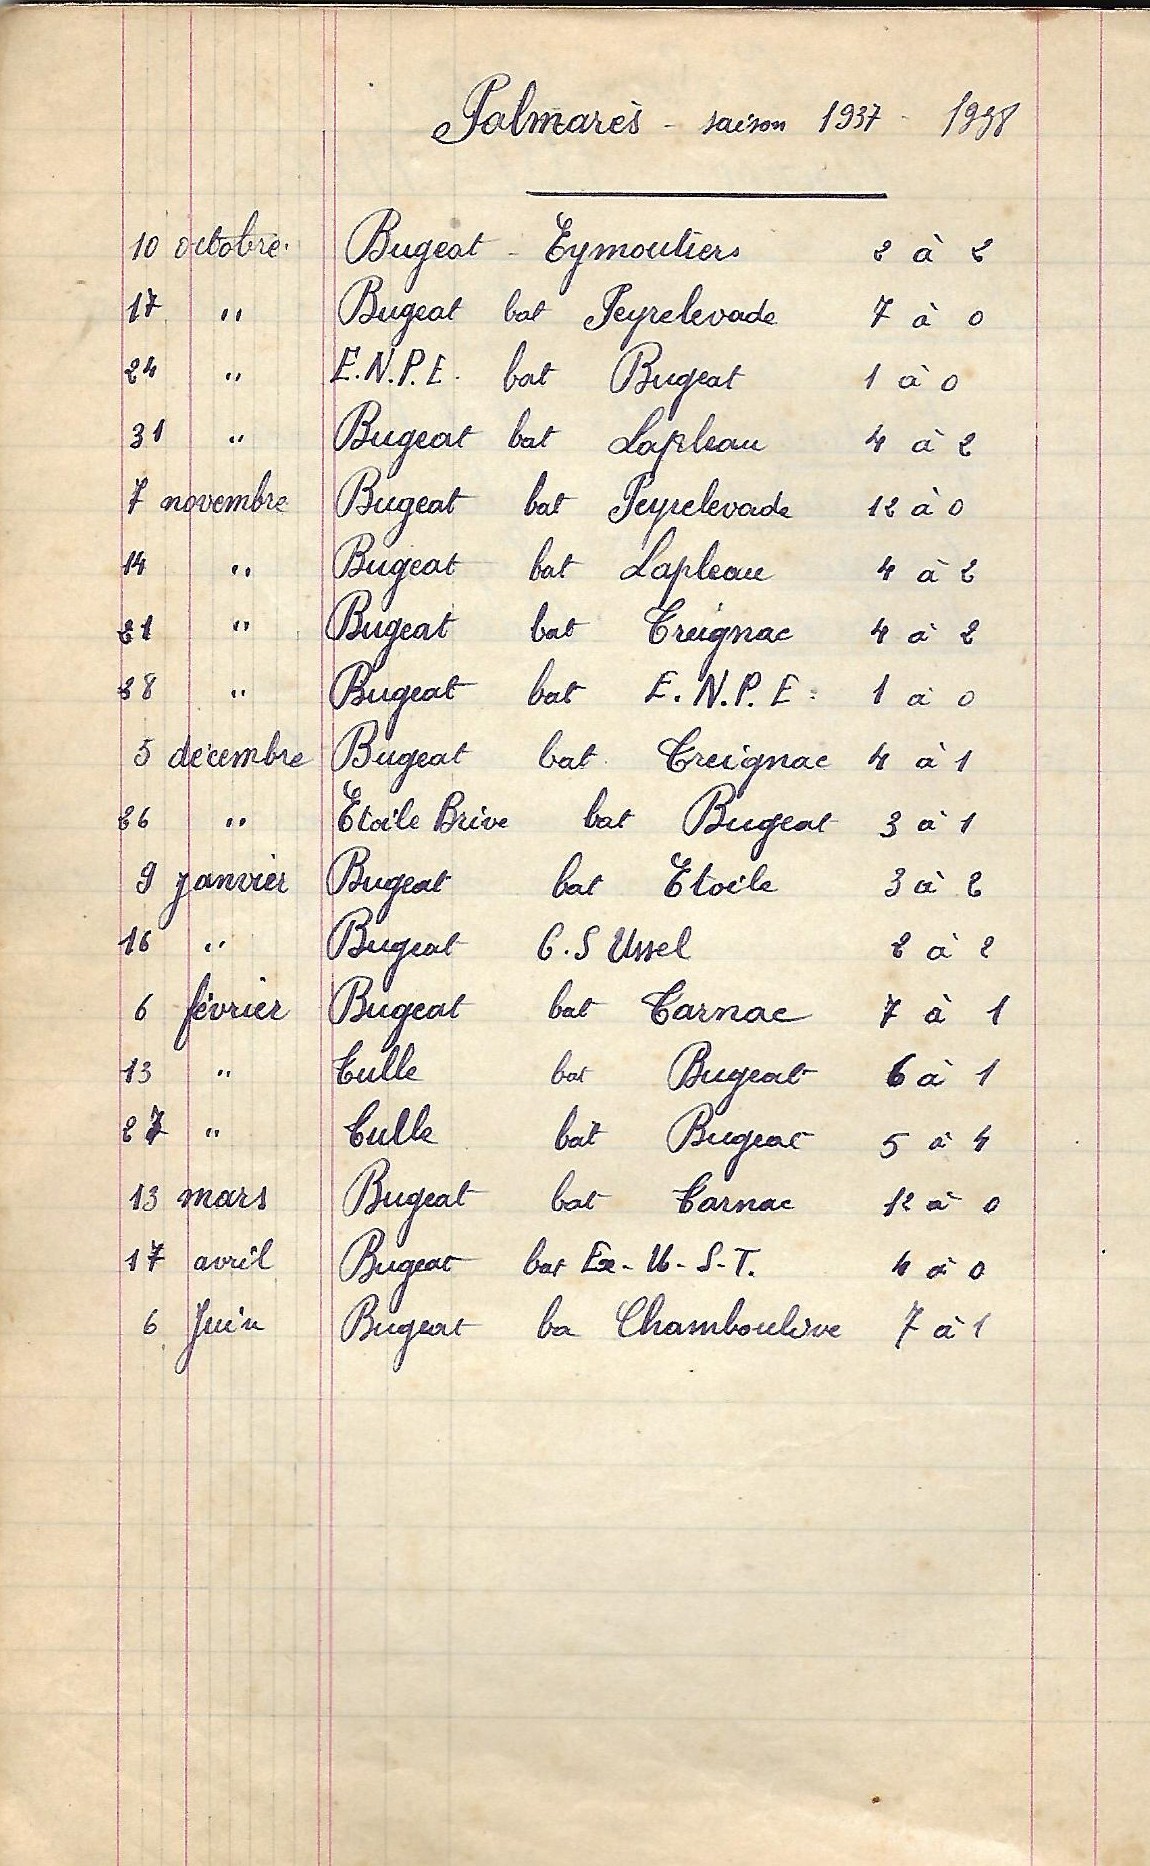 Palmarès - saison 1937 - 1938
10 octobre. Bugeat - Eymoutiers 2 à 2
17 " Bugeat bat Peyrelevade 7 à 0
24 " E.N.P.E. bat Bugeat 1 à 0
31 " Bugeat bat Lapleau 4 à 2
7 novembre Bugeat bat Peyrelevade 12 à 0
14 " Bugeat bat Lapleau 4 à 2
21 " Bugeat bat Treignac 4 à 2
28 " Bugeat bat E.N.P.E. 1 à 0
5 décembre Bugeat bat Treignac 4 à 1
26 " Etoile Brive bat Bugeat 3 à 1
9 janvier Bugeat bat Etoile 3 à 2
16 " Bugeat C.S Ussel 2 à 2
6 février Bugeat bat Tarnac 7 à 1
13 " Tulle bat Bugeat 6 à 1
27 " Tulle bat Bugeat 5 à 4
13 mars Bugeat bat Tarnac 12 à 0
17 avril Bugeat bat Ex-U-S-T. 4 à 0
6 Juin Bugeat ba Chamboulive 7 à 1